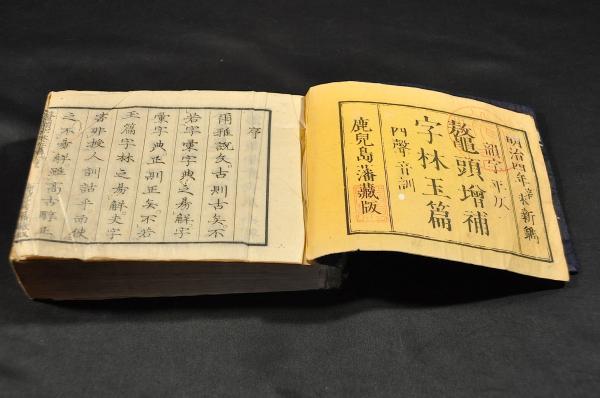 明治四年新鐫
字平仄
鼇頭增補
字林玉篇
四聲音訓
鹿兒島藩藏版
序
爾雅說文古則古矣不
若字彙字典之易解字
彙字典正則正矣不若
玉篇字林之易解夫字
書非授人訓詁乎而使
之不易解雖高古醇正